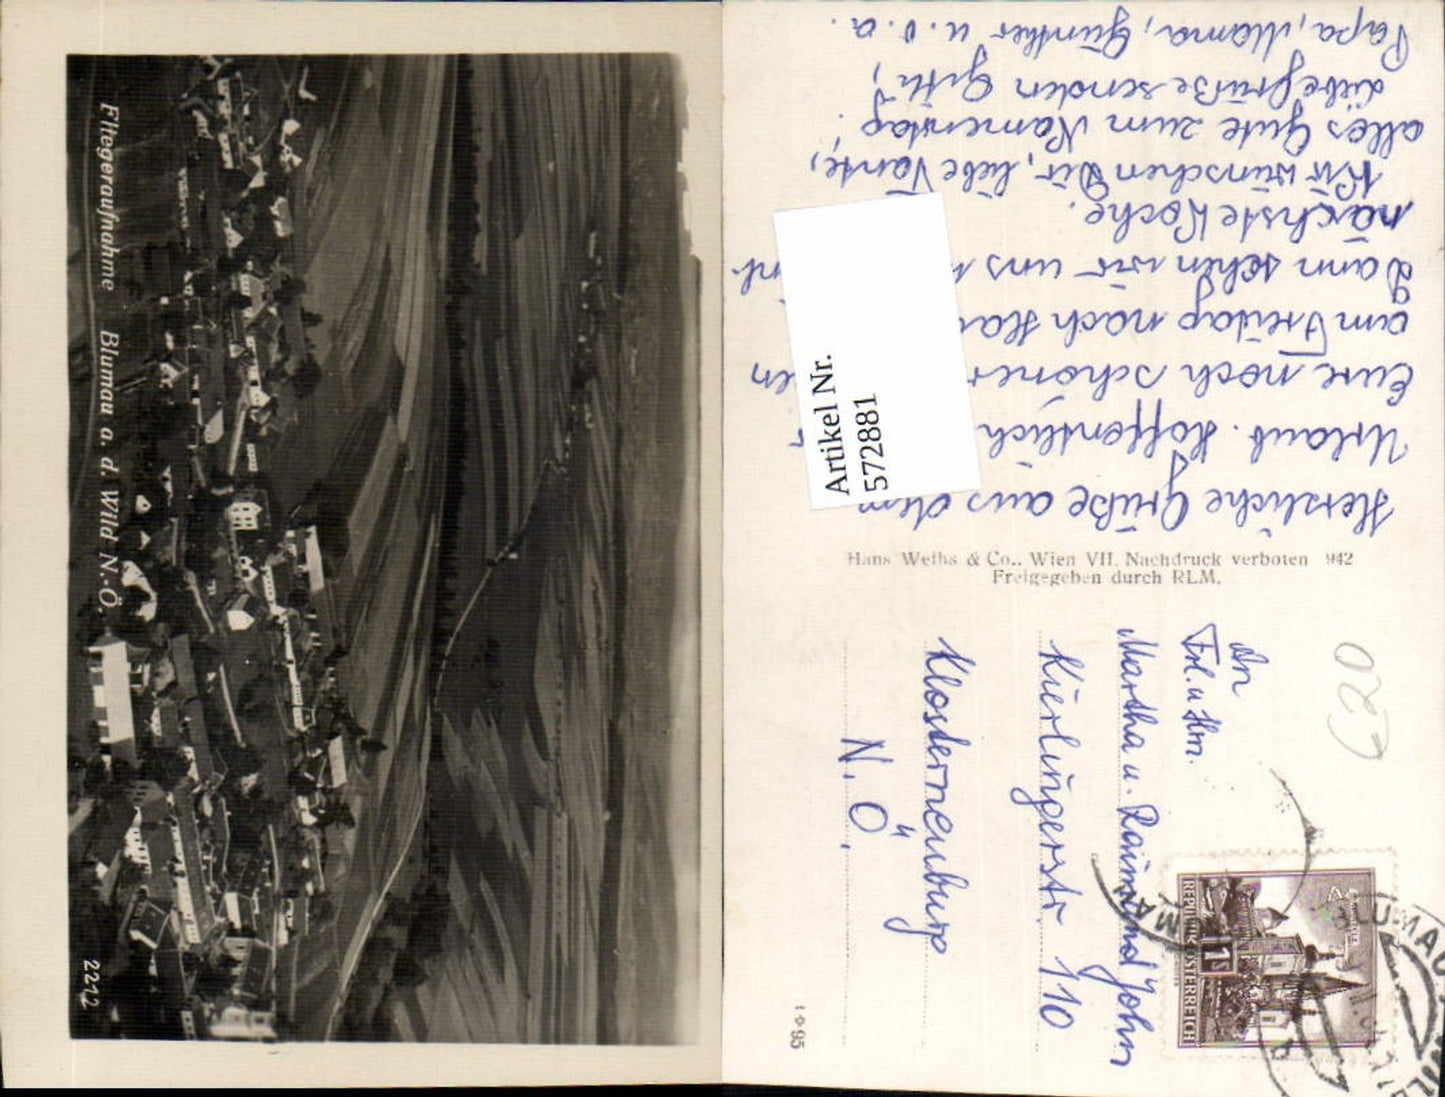 Fliegeraufnahme Blumau a. d. Wild N.-Ö.
2212
Herzliche Grüße aus dem
Urlaub. Hoffentlich
Eure noch schöner
am Freitag nach
Dann sehen wir uns
nächste Woche.
Wir wünschen Dir, liebe Tante,
alles Gute zum Namenstag.
Liebe Grüße senden Gitti,
Papa, Mama, Günther u. v. a.
Artikel Nr.
572881
Hans Weihs & Co., Wien VII. Nachdruck verboten 942
Freigegeben durch RLM.
620
An
Frl. u. Hrn.
Martha u. Raimund John
Kierlingerstr. 110
Klosterneuburg
N. Ö.
1-9-95
REPUBLIK ÖSTERREICH
1 S
BLUMAU